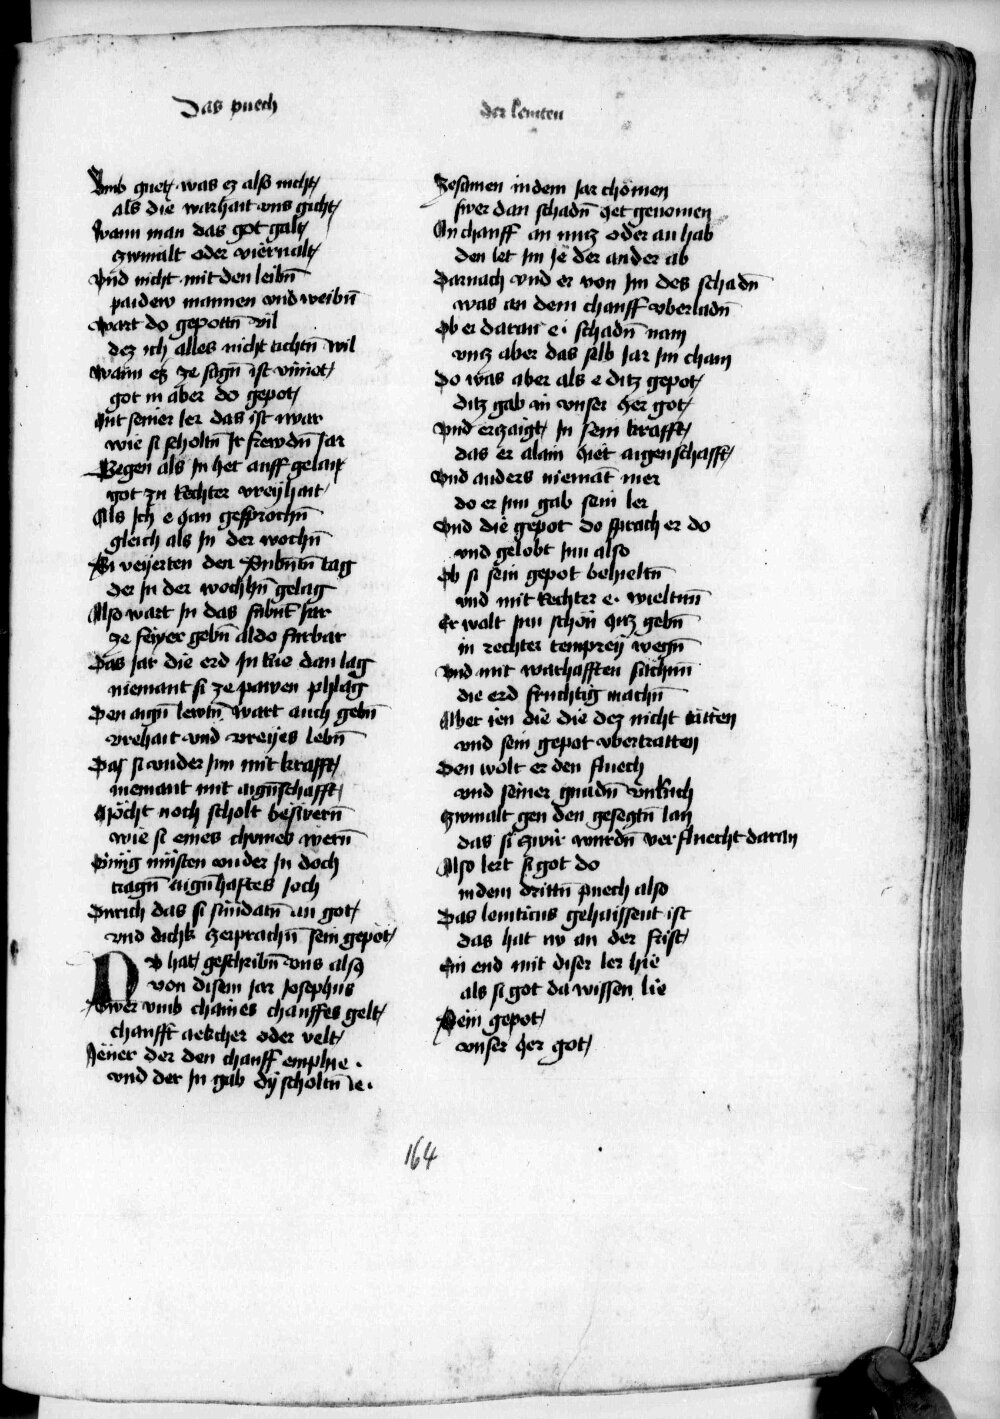 Das puech
der leuiten
Vmb guet was ez also nicht
als die warhait vns gicht
Wann man das got galt
zwiualt oder viervalt
Vnd nicht mit den leibn̄
paidew mannen vnd weibn̄
Wart do gepottn̄ vil
dez ich alles nicht tichtn̄ wil
Wann ez ze sagn̄ ist vnnot
got in aber do gepot
Mit seiner ler das ist war
wie si scholtn̄ Jr frewdn̄ Jar
Begen als Jn het auff gelait
got zu Rechter vreyhait
Als Jch e han gesprochn̄
gleich als Jn der wochn̄
Si veyerten den Sybntn̄ tag
der Jn der wochhn̄ gelag
Also wart Jn das sibnt Jar
ze feiyer gebn̄ aldo furbar
Das Jar die erd Jn Rue dan lag
niemant si ze pawen phlag
Den aign̄ lewtn̄ wart auch gebn̄
vrehait vnd vreyes lebn̄
Das si vnder Jm mit krafft
niemant mit aign̄schafft
Möcht noch scholt beswern̄
wie si eines chuneb wern̄
Ewig müsten vnder Jn doch
tragn̄ aign̄haftes Joch
Durich das si sundatn̄ an got
vnd dichk zerprachn̄ sein gepot
Nv hat geschribn̄ vns also
von disem Jar Josephus
Swer vmb chaines chauffes gelt
chaufft aekcher oder velt
Jener der den chauff emphie
vnd der Jn gab dy scholtn̄ ie
Zesamen in dem Jar chömen
swer dan schadn̄ het genomen
An chauff an nucz oder an hab
den let Jm Je der ander ab
Darnach vnd er von Jm des schadn̄
was an dem chauff vberladn̄
Ob er daran e schadn̄ nam
vncz aber das selb Jar Jm cham
Do was aber als e ditz gepot
ditz gab in vnser her got
Vnd erzaigt Jn sein krafft
das er alain hiet aigenschafft
Vnd anders niemāt mer
do er Jnn gab sein ler
Vnd die gepot do sprach er do
vnd gelobt Jnn also
Ob si sein gepot behieltn̄
vnd mit Rechter e wieltnn̄
Er wolt Jnn schön hicz gebn̄
in rechter temprey wegn̄
Vnd mit warhafften sachnn̄
die erd fruchtig machn̄
Aber ien die die dez nicht tätten
vnd sein gepot vbertratten
Den wolt er den fluech
vnd seiner gnadn̄ vnRuch
Zwiualt gen den gesegtn̄ lan
das si zwir wurdn̄ verfluecht daran
Also lert si got do
in dem drittn̄ puech also
Das leuiticus gehaissent ist
das hat nv an der frist
Ein end mit diser ler hie
als si got da wissen lie
Sein gepot
vnser her got
164